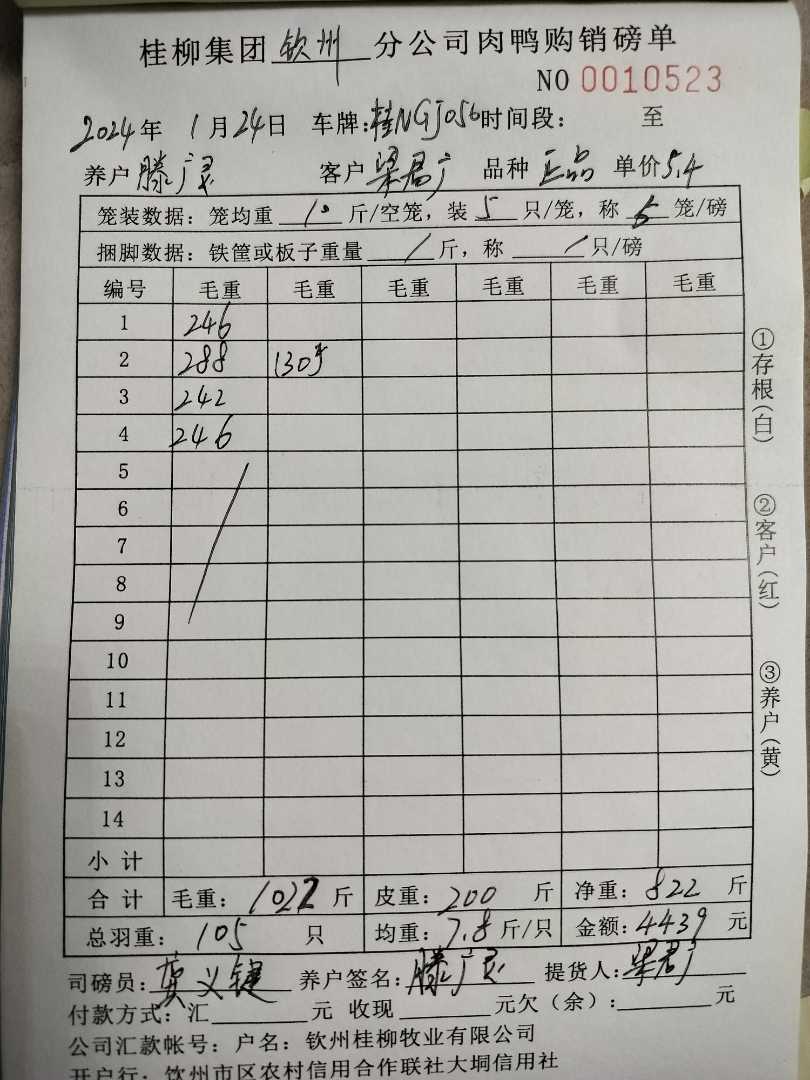 桂柳集团 钦州 分公司肉鸭购销磅单
NO 0010523
2024年 1月24日 车牌:桂NGJ056 时间段: 至
养户 滕广灵 客户 梁君广 品种 正品 单价5.4
笼装数据: 笼均重 10 斤/空笼, 装 5 只/笼, 称 5 笼/磅
捆脚数据: 铁筐或板子重量 / 斤, 称 / 只/磅
编号 毛重 毛重 毛重 毛重 毛重 毛重
1 246
2 288 130
3 242
4 246
5
6
7
8
9
10
11
12
13
14
小计
合计 毛重: 1022 斤 皮重: 200 斤 净重: 822 斤
总羽重: 105 只 均重: 7.8 斤/只 金额: 4439 元
司磅员: 义键 养户签名: 滕广灵 提货人: 梁君广
付款方式: 汇 元 收现 元欠(余): 元
公司汇款帐号: 户名: 钦州桂柳牧业有限公司
开户行: 钦州市区农村信用合作联社大垌信用社
①存根(白)
②客户(红)
③养户(黄)